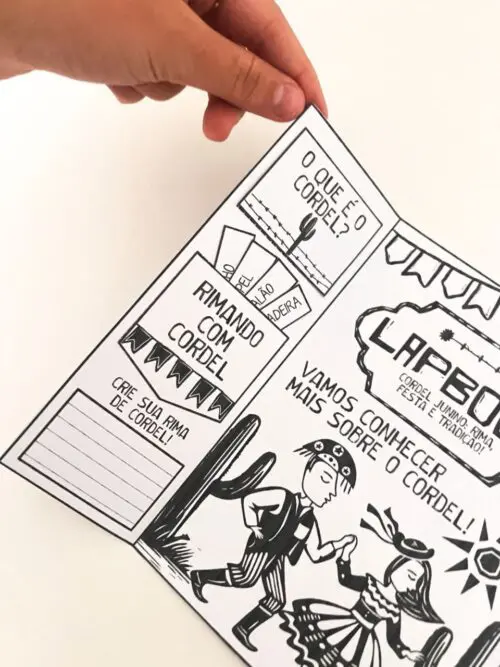 O QUE É O
CORDEL?
ADEIRA
RIMANDO
COM
CORDEL
CRIE SUA RIMA
DE CORDEL!
LAPBO
CORDEL JUNINO: RIMA,
FESTA E TRADIÇÃO!
VAMOS CONHECER
MAIS SOBRE O CORDEL!